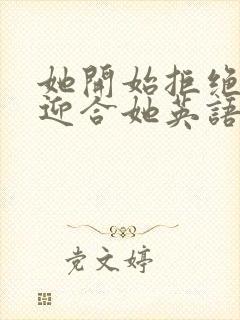 她開始拒絕
迎合她英語
党文婷